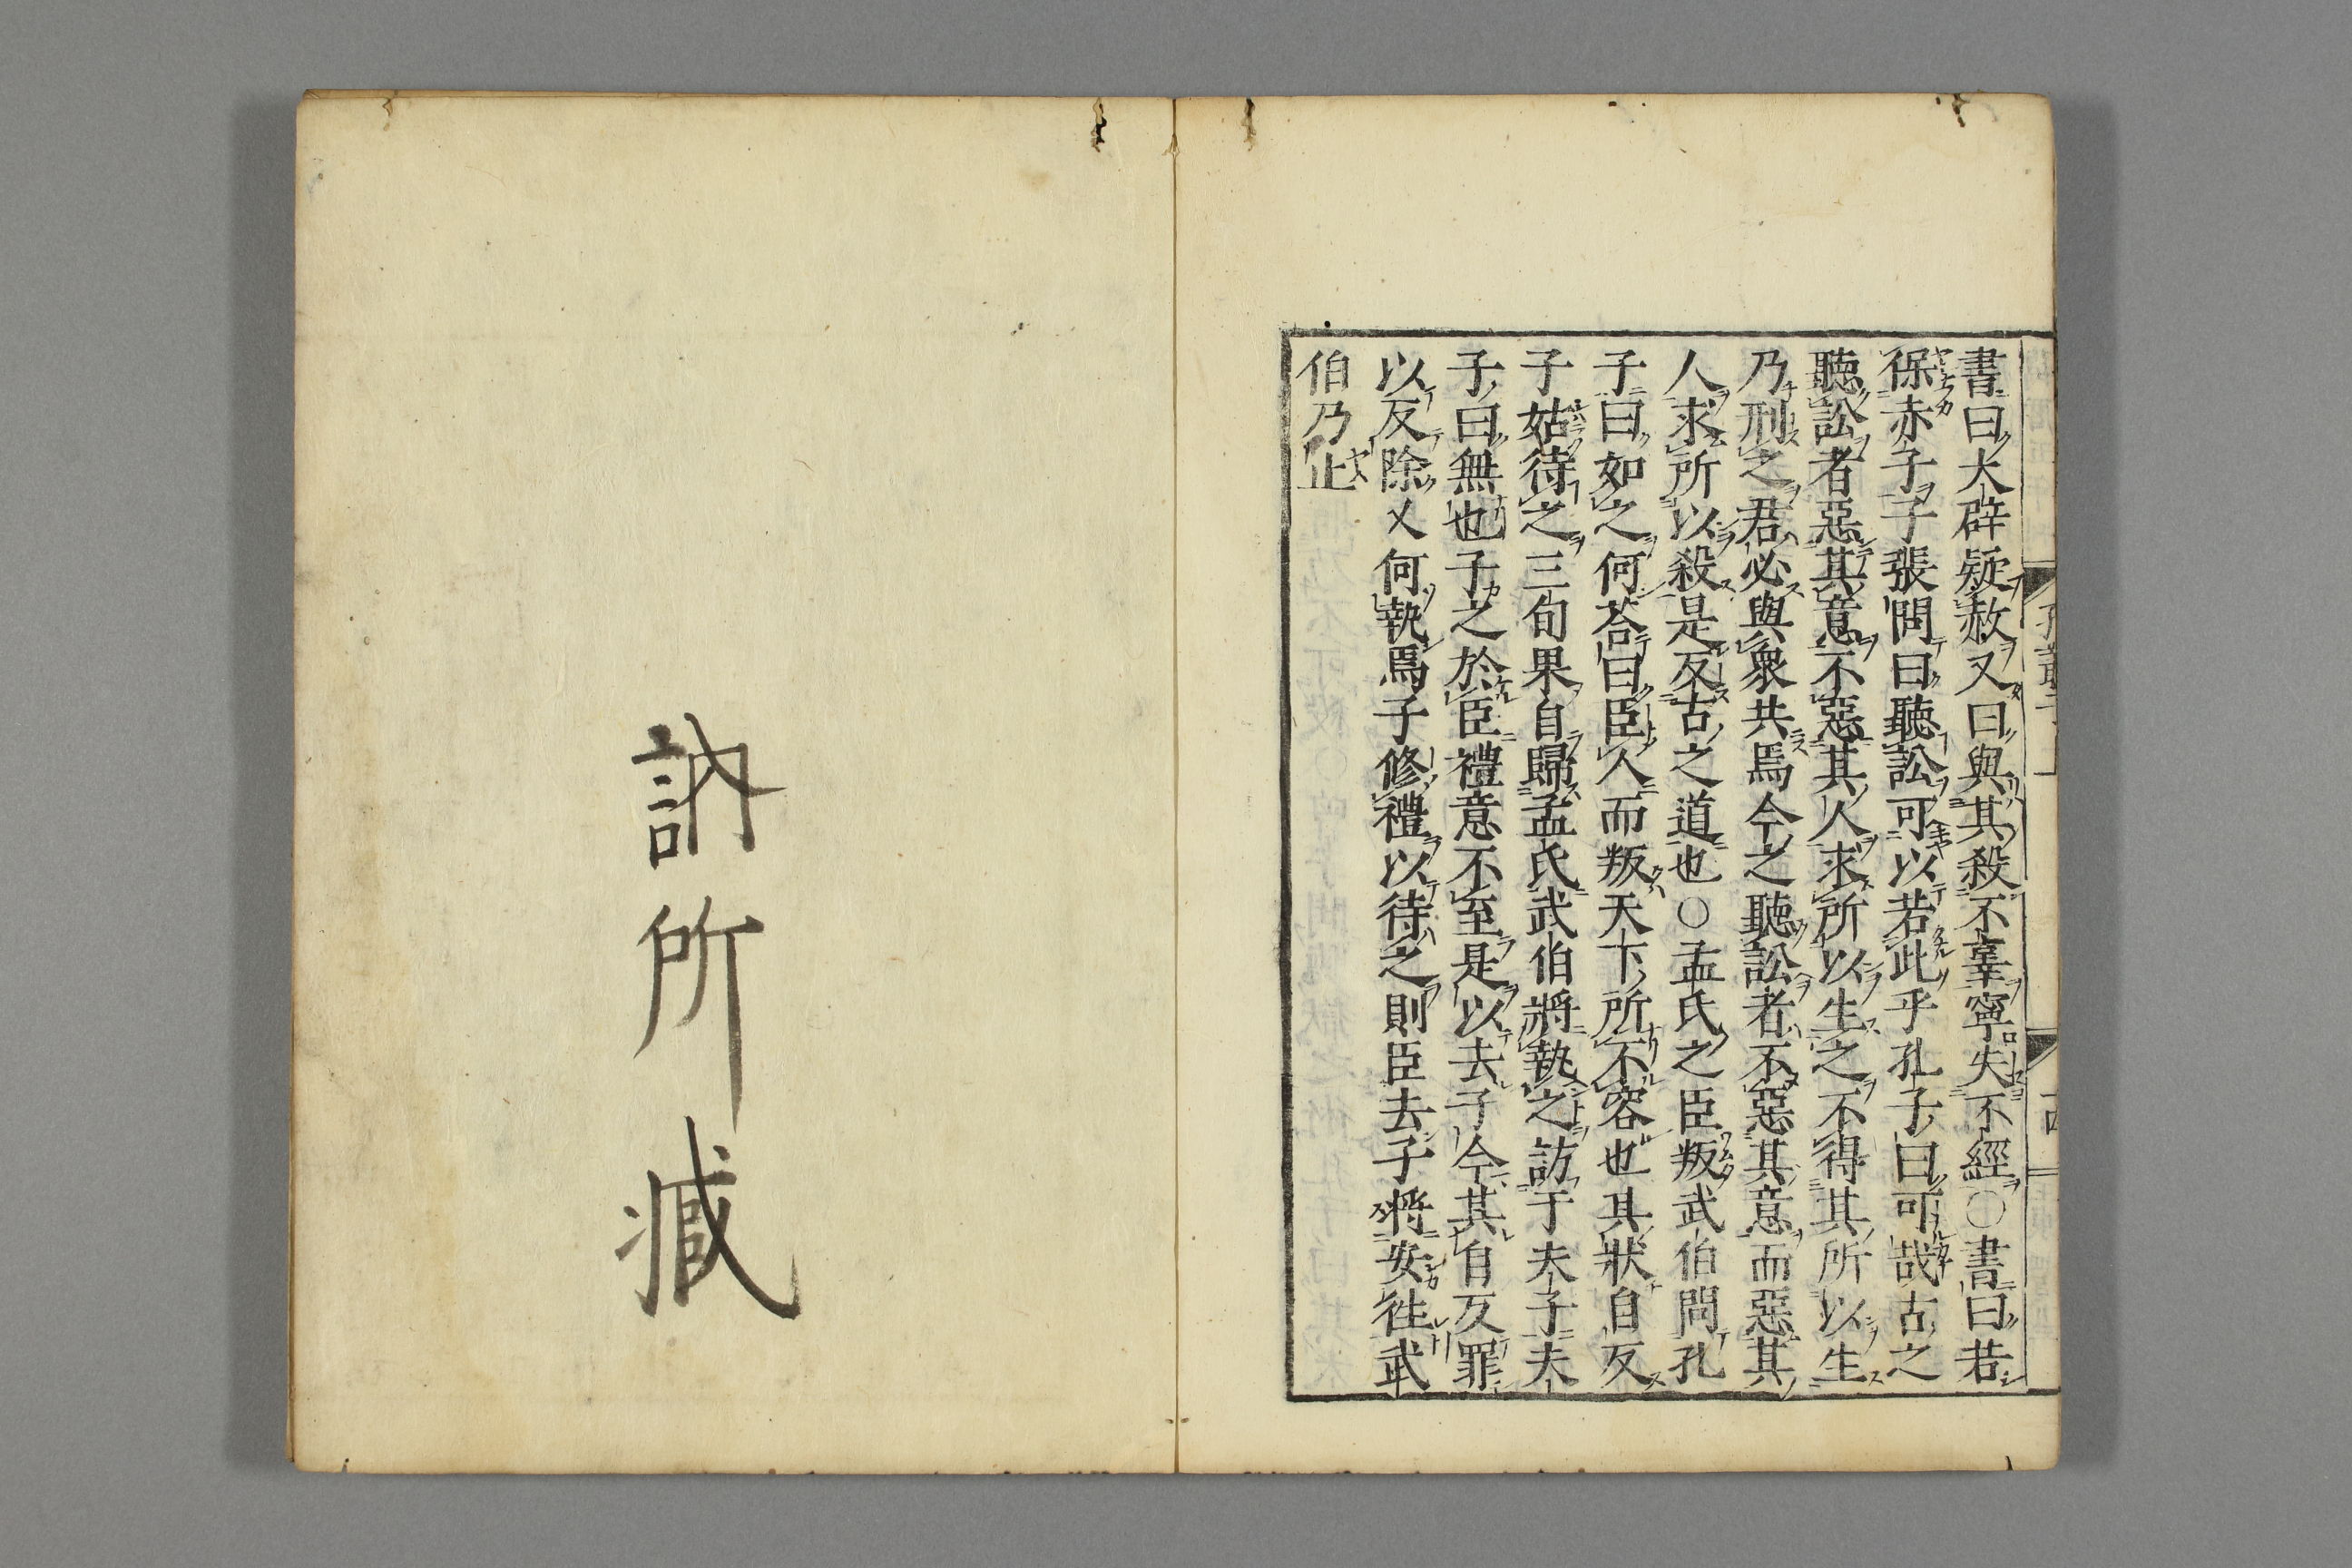 書曰大辟疑赦又曰與其殺不辜寧失不經○書曰若
保赤子子張問曰聽訟可以若此乎孔子曰可哉古之
聽訟者惡其意不惡其人求所以生之不得其所以生
乃刑之君必與衆共焉今之聽訟者不惡其意而惡其
人求所以殺是反古之道也○孟氏之臣叛武伯問孔
子曰如之何荅曰臣人而叛天下所不容也其狀自反
子姑待之三旬果自歸孟氏武伯將執之訪于夫子夫
子曰無也子之於臣禮意不至是以去子今其自反罪
以反除又何執焉子修禮以待之則臣去子將安往武
伯乃止
訥所臧